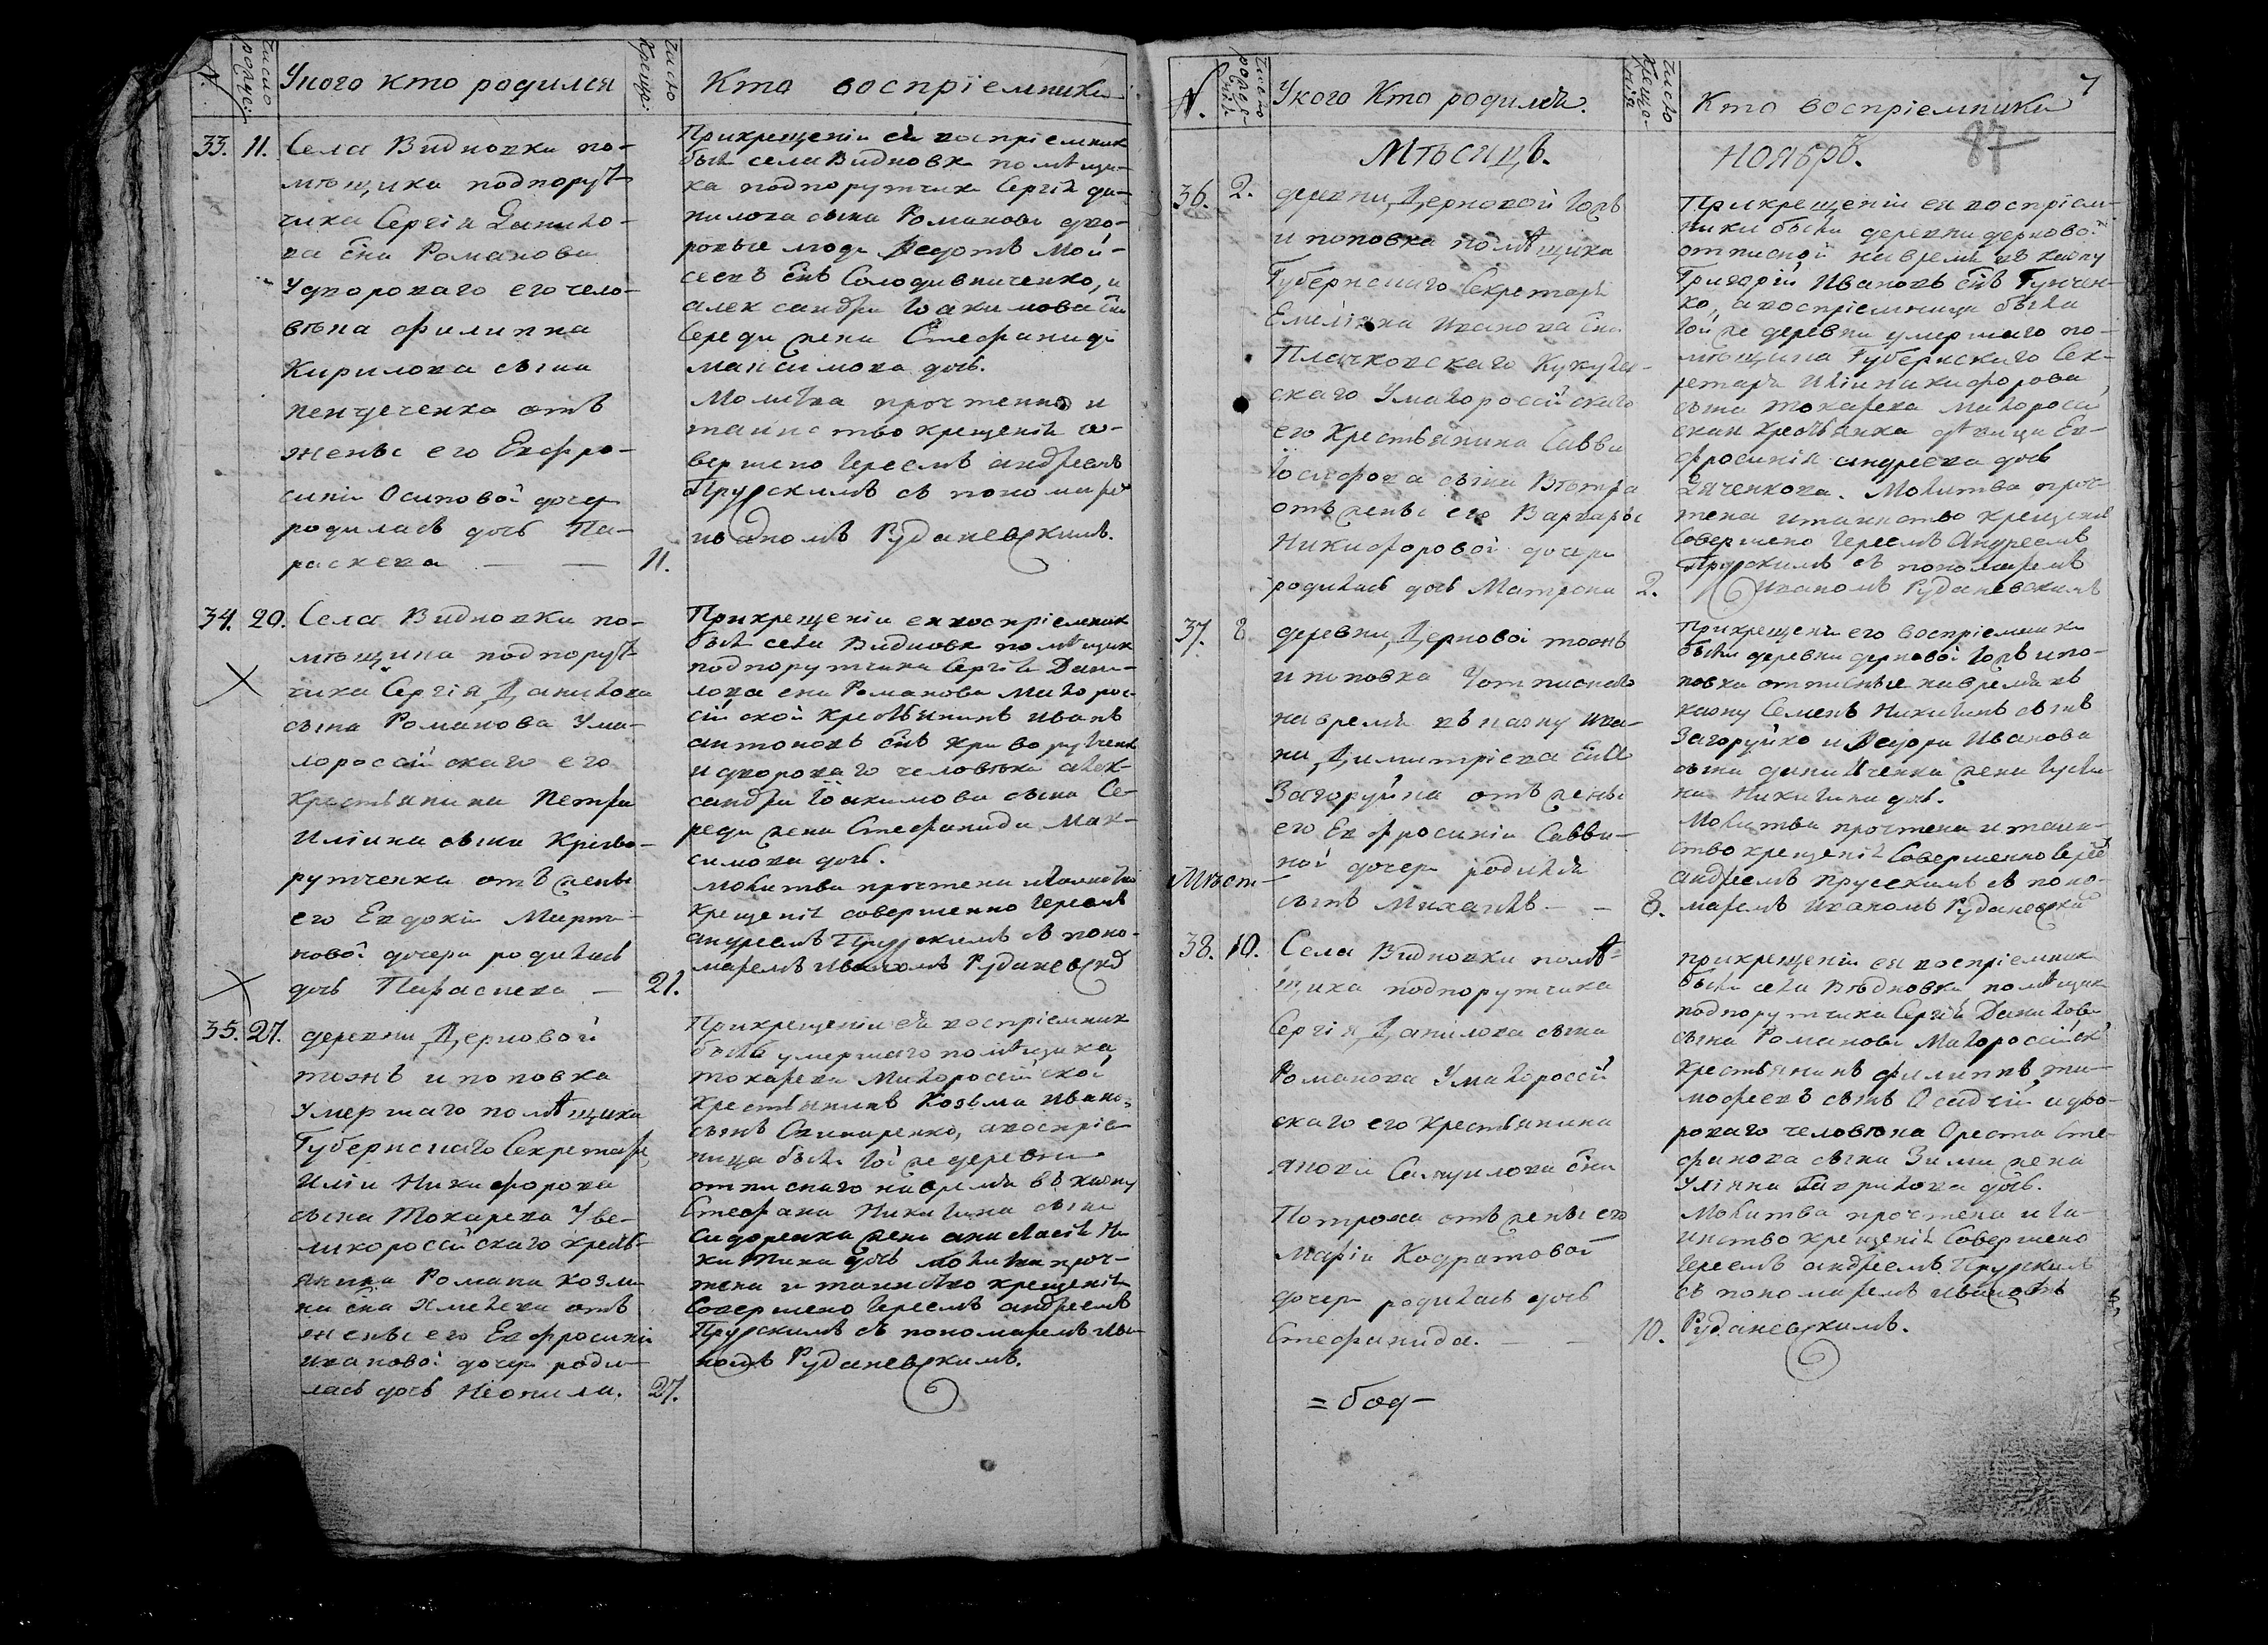 N.
число рожде:
У кого кто родился
число Креще:
Кто воспріемники
33. 11.
Села Видновки по-
мѣщика подпорут-
чика Сергія Данило-
ва сна Романова
У дворового его чело-
вѣка филиппа
Кирилова сына
отъ
жены его Евфро-
синіи Осиповой дочер
родилась дочь Па-
раскева — — 11.
При крещеніи ея воспріемник
были села Видновк помѣщи-
ка подпорутчика Сергія да-
нилова сына Романова дво-
ровые люди Федотъ Мой-
сеевъ снъ Солодивниченко, и
александра Іоакимова сна
Середи жена Стефанида
максимова дочь.
Молитва прочтенна и
таинство крещенія со-
вершено Іереемъ андреемъ
Прускимъ съ пономаре
иваномъ Руданевскимъ.
34. 20.
Села Видновки по-
мѣщика подпорут-
чика Сергія Данилова
сына Романова У ма-
лороссійскаго его
Крестьянина Петра
Иліина сына Криво-
рутченка отъ жены
его Евдокіи Марти-
новой дочери родилась
дочь Параскева — 21.
При крещеніи ея воспріемник
были села Видновк помѣщик
подпорутчика Сергія Дани-
лова сна Романова малорос-
сійской крестьянинъ иванъ
антоновъ снъ криворутченк
и дворового человѣка алек-
сандра Іоакимова сына Се-
реди жена Стефанида Мак-
симова дочь.
молитва прочтена и таинство
крещенія совершенно Іереемъ
андреемъ Прускимъ съ поно-
маремъ иваномъ Руданевск
35. 27.
деревни Дерновой
тожъ и поповка
Умершаго помѣщика
Губернскаго Секретаря
Иліи Никифорова
сына Токарева У ве-
ликороссійскаго крестъ-
янина Романа козми-
на сна отъ
жены его Евфросиніи
ивановой дочери роди-
лась дочь Неонила. 27.
При крещеніи ея воспріемник
были умершаго помѣщика
токарева Малоросійской
крестьянинъ Козьма ивано
сынъ а воспріе-
ница была той же деревни
отписнаго навремя въ казну
Стефана Никитина сына
Сидоренка жена анастасія Ни-
китина дочь молитва проч-
тена и таинство крещенія
Совершено Іереемъ андреемъ
Прускимъ съ пономаремъ ива-
номъ Руданевскимъ.
N.
число рожде-
нія
У кого Кто родился.
число Креще-
нія
Кто воспріемники
7
87
Мѣсяцъ. Ноябрь.
36. 2.
деревни Дерновой тожъ
и поповка помѣщика
Губернскаго Секретаря
Емеліяна иванова сна
Плачковскаго
скаго У малороссійскаго
его Крестьянина Саввы
Іосифова сына Вѣтра
отъ жены его Варвары
Никифоровой дочери
родилась дочь Матрона 2.
При крещеніи ея воспріем-
ники были деревни дерновой
отписной навремя въ казну
Григорій Ивановъ снъ Гунчен-
ко, а воспріемница была
той же деревни умершаго по-
мѣщика Губернскаго Сек-
ретаря Иліи никифорова
сына токарева малоросси
ская крестьянка дѣвица Ев-
фросинія андреева дочь
Дяченкова. Молитва проч-
тена и таинство крещенія
Совершено Іереемъ Андреемъ
Прускимъ съ пономаремъ
Иваномъ Руданевскимъ
37. 8.
деревни Дерновой тожъ
и поповка У отписнаго
навремя въ казну ива-
на Димитріева сна
Загоруйка отъ жены
его Евфросиніи Савви-
ной дочери родился
сынъ Михаилъ — — 8.
При крещеніи его воспріемники
были деревни дерновой тожъ и по-
повка отписные навремя въ
казну Семенъ Никитинъ сынъ
Загоруйко и Федора Иванова
сына даниленка жена
на Никитина дочь.
Молитва прочтена и таин-
ство крещенія Совершенно Іерее
андреемъ прусскимъ съ поно-
маремъ Иваномъ Руданевски
38. 10.
Села Видновки помѣ-
щика подпорутчика
Сергія Данилова сына
Романова У малороссій
скаго его крестьянина
якова Самуилова сна
Потрова отъ жены его
Маріи Кодратовой
дочери родилась дочь
Стефанида. — — 10.
При крещеніи ея воспріемник
были села Видновки помѣщик
подпорутчика Сергія Данилова
сына Романова Малоросійск
крестьянинъ филиппъ ти-
мофеевъ сынъ Осадчій и дво-
роваго человѣка Ореста Сте-
фанова сына Зими жена
Уліяна Гаврилова дочь.
Молитва прочтена и та-
инство крещенія Совершено
Іереемъ андреемъ Прускимъ
съ пономаремъ иваномъ
Руданевскимъ.